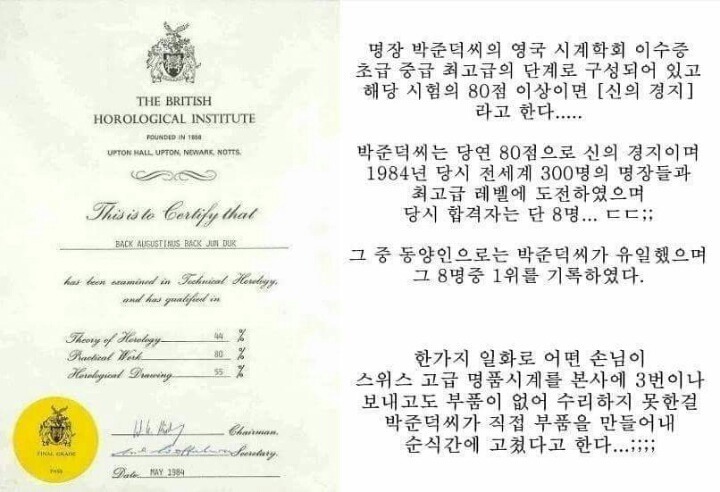 THE BRITISH
HOROLOGICAL INSTITUTE
FOUNDED IN 1858
UPTON HALL, UPTON, NEWARK, NOTTS.
This is to Certify that
BACK AUGUSTINUS BACK JUN DUK
has been examined in Technical Horology,
and has qualified in
Theory of Horology 44 %
Practical Work 80 %
Horological Drawing 55 %
Chairman.
Secretary.
Date MAY 1984
FINAL GRADE
명장 박준덕씨의 영국 시계학회 이수증
초급 중급 최고급의 단계로 구성되어 있고
해당 시험의 80점 이상이면 [신의 경지]
라고 한다.....
박준덕씨는 당연 80점으로 신의 경지이며
1984년 당시 전세계 300명의 명장들과
최고급 레벨에 도전하였으며
당시 합격자는 단 8명... ㄷㄷ;;
그 중 동양인으로는 박준덕씨가 유일했으며
그 8명중 1위를 기록하였다.
한가지 일화로 어떤 손님이
스위스 고급 명품시계를 본사에 3번이나
보내고도 부품이 없어 수리하지 못한걸
박준덕씨가 직접 부품을 만들어내
순식간에 고쳤다고 한다...;;;;